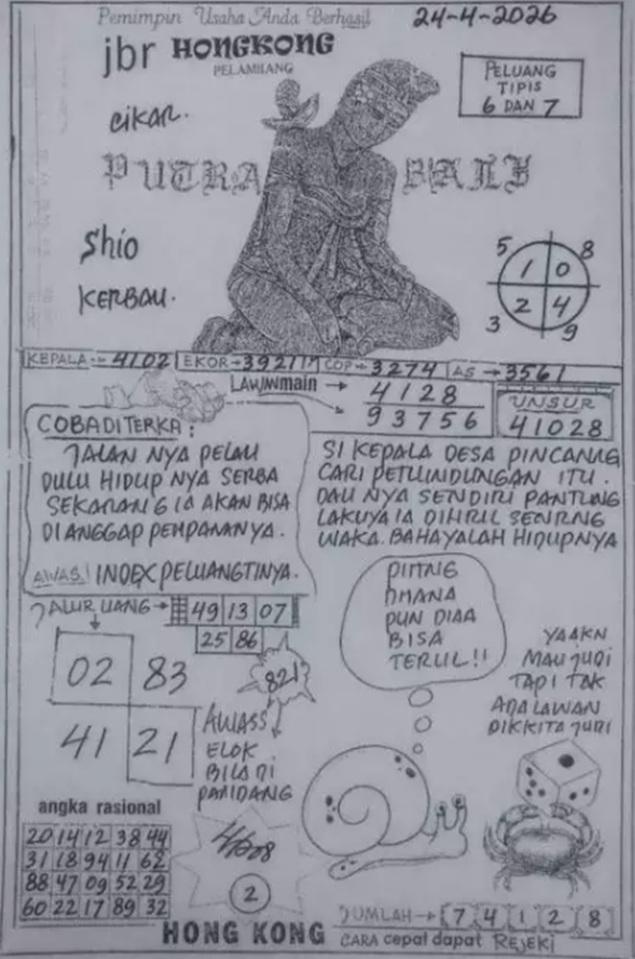 Pemimpin Usaha Anda Berhasil
24-4-2026
jbr HONGKONG
PELAMJIANG
PELUANG
TIPIS
6 DAN 7
cikar.
PUTRA BALI
Shio
KERBAU.
5 8
1 0
2 4
3 9
KEPALA 4102 EKOR 3921 COP 3274 AS 3561
LAWINmain → 4128
93756
UNSUR
41028
COBA DITERKA:
JALAN NYA PELAU
DULU HIDUP NYA SERBA
SEKARANG IA AKAN BISA
DI ANGGAP PEMPANANYA.
AWAS! INDEX PELUANGTINYA.
SI KEPALA DESA PINCANUG
CARI PETUNDUNGAN ITU.
DAU NYA SENDIRI PANTUNG
LAKUYA IA DIHRIL SENRNG
WAKA. BAHAYALAH HIDUPNYA
JALUR UANG → 49 13 07
25 86
02 83
41 21
821
AWASS
ELOK
BILA DI
PANDANG
DIMNG
DMANA
PUN DIAA
BISA
TERUL!!
YAAKN
MAU JUDI
TAPI TAK
ADA LAWAN
DIKKITA JUDI
angka rasional
20 14 12 38 44
31 18 94 11 62
88 47 09 52 29
60 22 17 89 32
2
JUMLAH → 7 4 1 2 8
HONG KONG CARA cepat dapat REJEKI